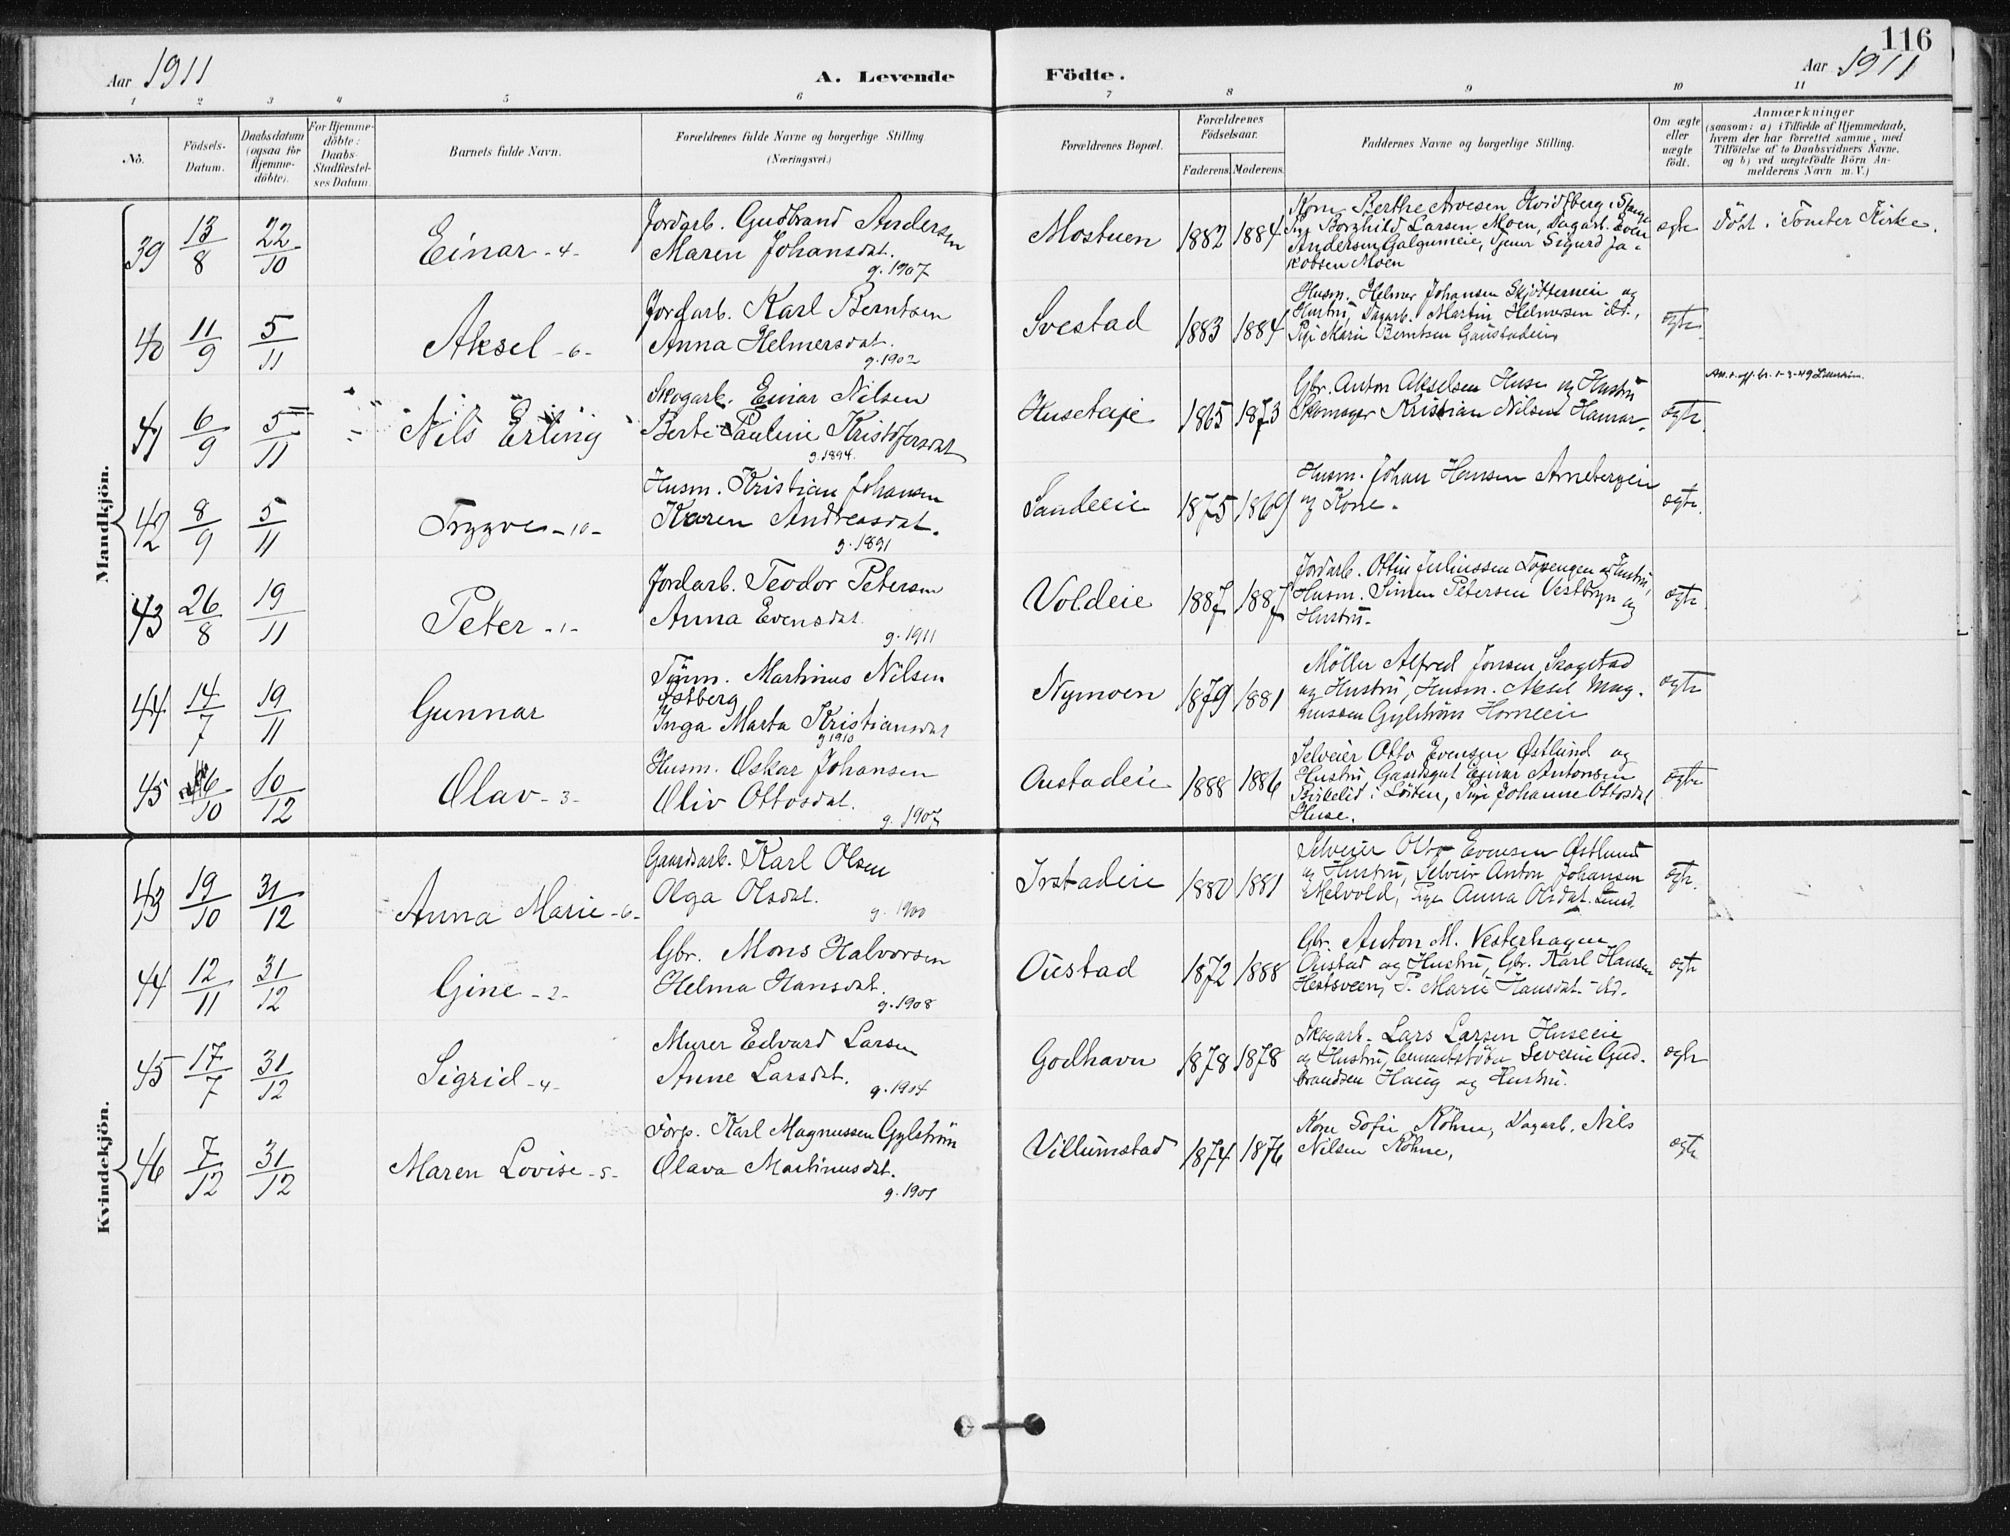 116
Aar 1911 A. Levende Födte. Aar 1911
1 2 3 4 5 6 7 8 9 10 11
No. Födsels-Datum. Daabsdatum (ogsaa for Hjemme-döbte). For Hjemme-döbte: Daabs-Stadfæstel-ses Datum. Barnets fulde Navn. Forældrenes fulde Navne og borgerlige Stilling (Næringsvei.) Forældrenes Bopæl. Forældrenes Födselsaar. Faderens. Moderens. Faddernes Navne og borgerlige Stilling. Om ægte eller uægte födt. Anmærkninger (saasom: a) i Tilfælde af Hjemmedaab, hvem der har forrettet samme, med Tilföielse af to Daabsvidners Navne. og b) ved uægtefödte Börn An-melderens Navn m. V.)
Mandkjön.
39 13/8 22/10 Einar -4-
Jordarb. Gudbrand Andersen
Maren Johansdat.
g. 1907
Mostuen 1882 1884
Kone Berthe Arvesen Hvidsberg,
Pige Borghild Larsen Moen, Dagarb. Even
Andersen Galgumeie, Tjener Sigurd Ja-
kobsen Moen
ægte Döbt i Tomter Kirke.
40 11/9 5/11 Aksel -6-
Jordarb. Karl Berntsen
Anna Helmersdat.
g. 1902
Svestad 1883 1884
Husm. Helmer Johansen Skjötterneie og
Hustru, Dagarb. Martin Helmersen ibd.,
Pige Marie Berntsen Gaustadeie
ægte.
41 6/9 5/11 Nils Erling
Skogarb. Einar Nilsen
Berte Pauline Kristofersdat
g. 1894.
Huseteie 1865 1873
Gbr. Anton Akselsen Huse og Hustru
Skomager Kristian Nilsen Hamar.
ægte.
42 8/9 5/11 Trygve -10-
Husm. Kristian Johansen
Karen Andreasdat.
g. 1891
Sandeeie 1875 1869
Husm. Johan Hansen Arnebergeie
og Kone.
ægte.
43 26/8 19/11 Peter -1-
Jordarb. Teodor Petersen
Anna Evensdat.
g. 1911
Voldeie 1887 1887
Jordarb. Ottin Juliussen Löpengen og Hustru,
Husm. Simen Petersen Vestbyn og
Hustru.
ægte.
44 14/7 19/11 Gunnar
Tömm. Martinus Nilsen
Östberg
Inga Marta Kristiansdat
g 1910
Nymoen 1879 1881
Möller Alfred Jonsen Skogstad
og Hustru, Husm. Aksel Mag-
nussen Gylström Horneeie
ægte
45 /10 10/12 Olav -3-
Husm. Oskar Johansen
Oliv Ottosdat.
g. 1907
Oustadeie 1888 1886
Selveier Otto Evensen Østlund og
Hustru, Gaardsgut Einar Antonsen
Birkelid i Löiten, Pige Johanne Ottosdat
Huse.
ægte
Kvindekjön.
43 19/10 31/12 Anna Marie -6-
Gaardsarb. Karl Olsen
Olga Olsdat.
g. 1900
Irstadeie 1880 1881
Selveier Otto Evensen Østlund
og Hustru, Selveier Anton Johansen
Melvold, Pige Anna Olsdat.
ægte.
44 12/11 31/12 Gine -2-
Gbr. Mons Halvorsen
Helma Hansdat.
g. 1908
Oustad 1872 1888
Gbr. Anton M. Vesterhagen
Oustad og Hustru, Gbr. Karl Hansen
Hestsveen, P. Marie Hansdat. ibd.
ægte
45 17/7 31/12 Sigrid -4-
Murer Edvard Larsen
Anne Larsdat.
g. 1904
Godhavn 1878 1878
Skogarb. Lars Larsen Huseeie
og Hustru, Cementstöber Severin Gud-
brandsen Haug og Hustru.
ægte
46 7/12 31/12 Maren Lovise -5-
Forp. Karl Magnussen Gylström
Olava Martinusdat.
g. 1901
Villumstad 1874 1876
Kone Sofie Köhne, Dagarb. Nils
Nilsen Köhne.
ægte